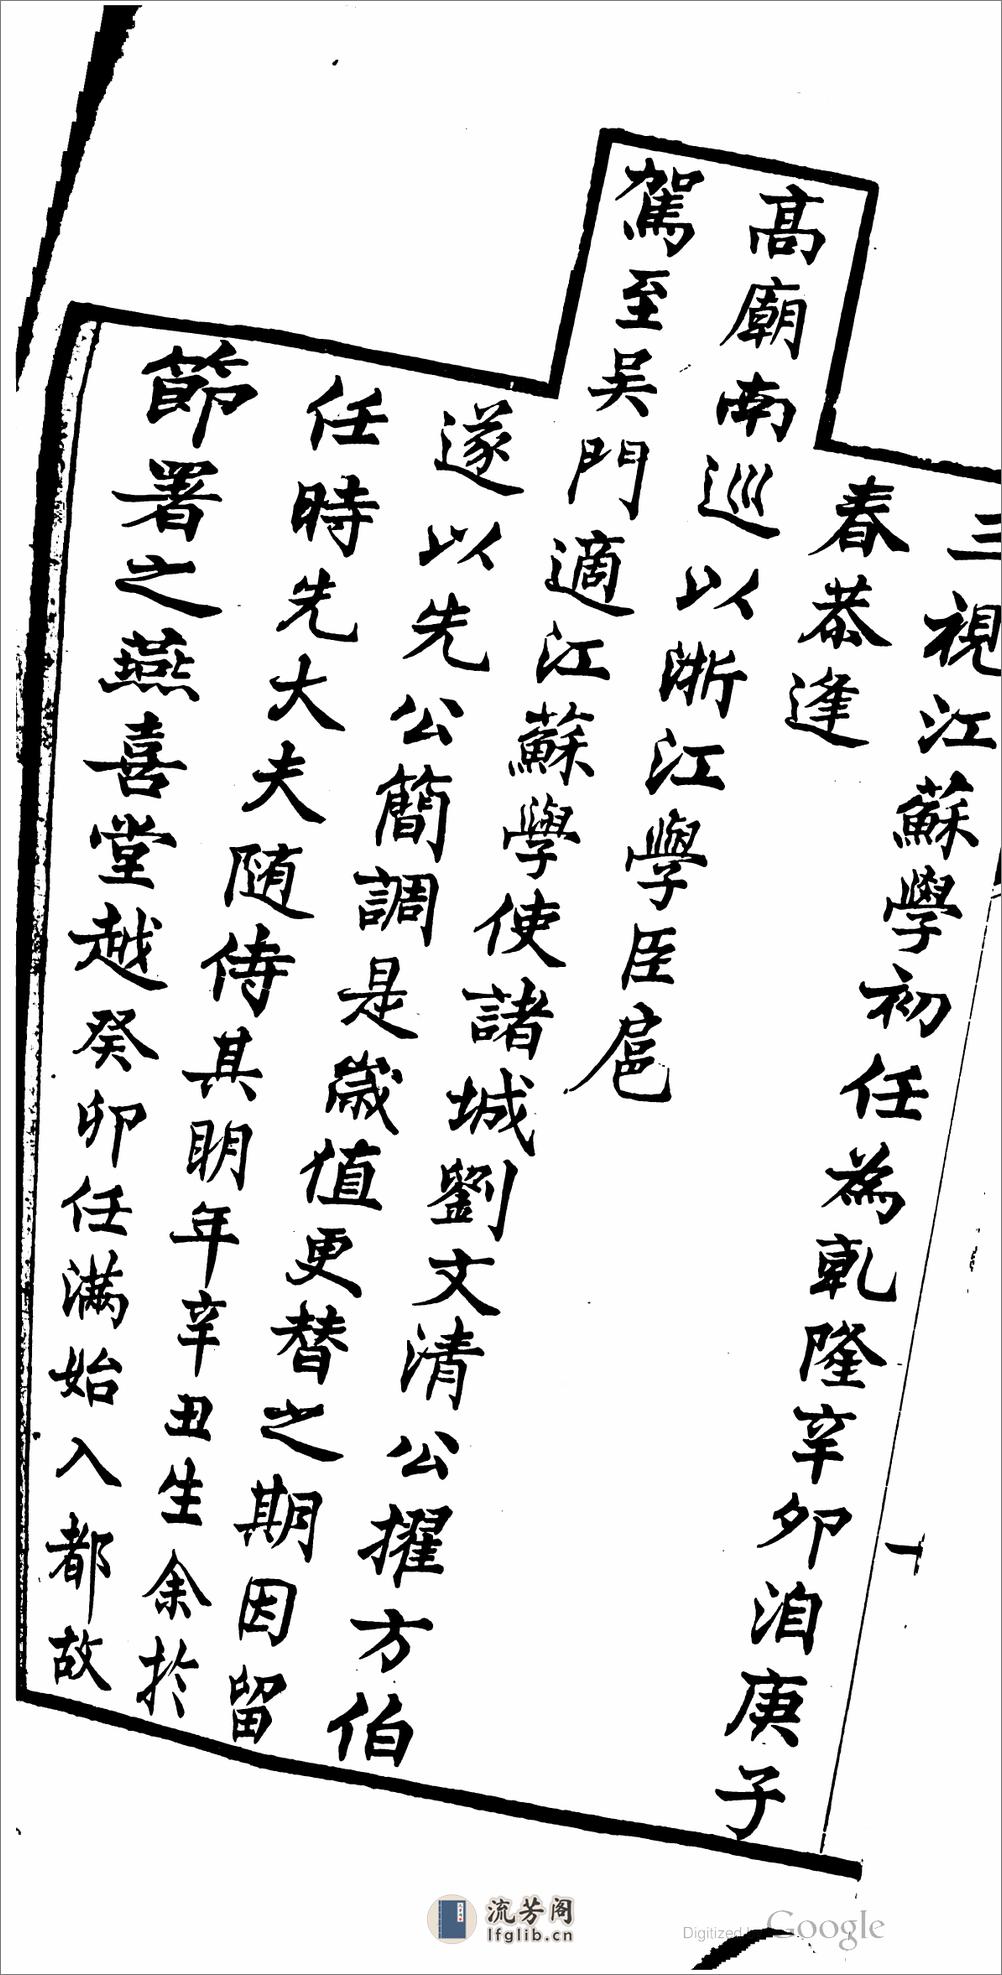 三視江蘇學初任為乾隆辛卯洎庚子
春恭逢
高廟南巡以浙江學臣扈
駕至吴門適江蘇學使諸城劉文清公擢方伯
遂以先公簡調是歲值更替之期因留
任時先大夫随侍其明年辛丑生余於
節署之燕喜堂越癸卯任滿始入都故
流芳阁
lfglib.cn
Digitized by Google